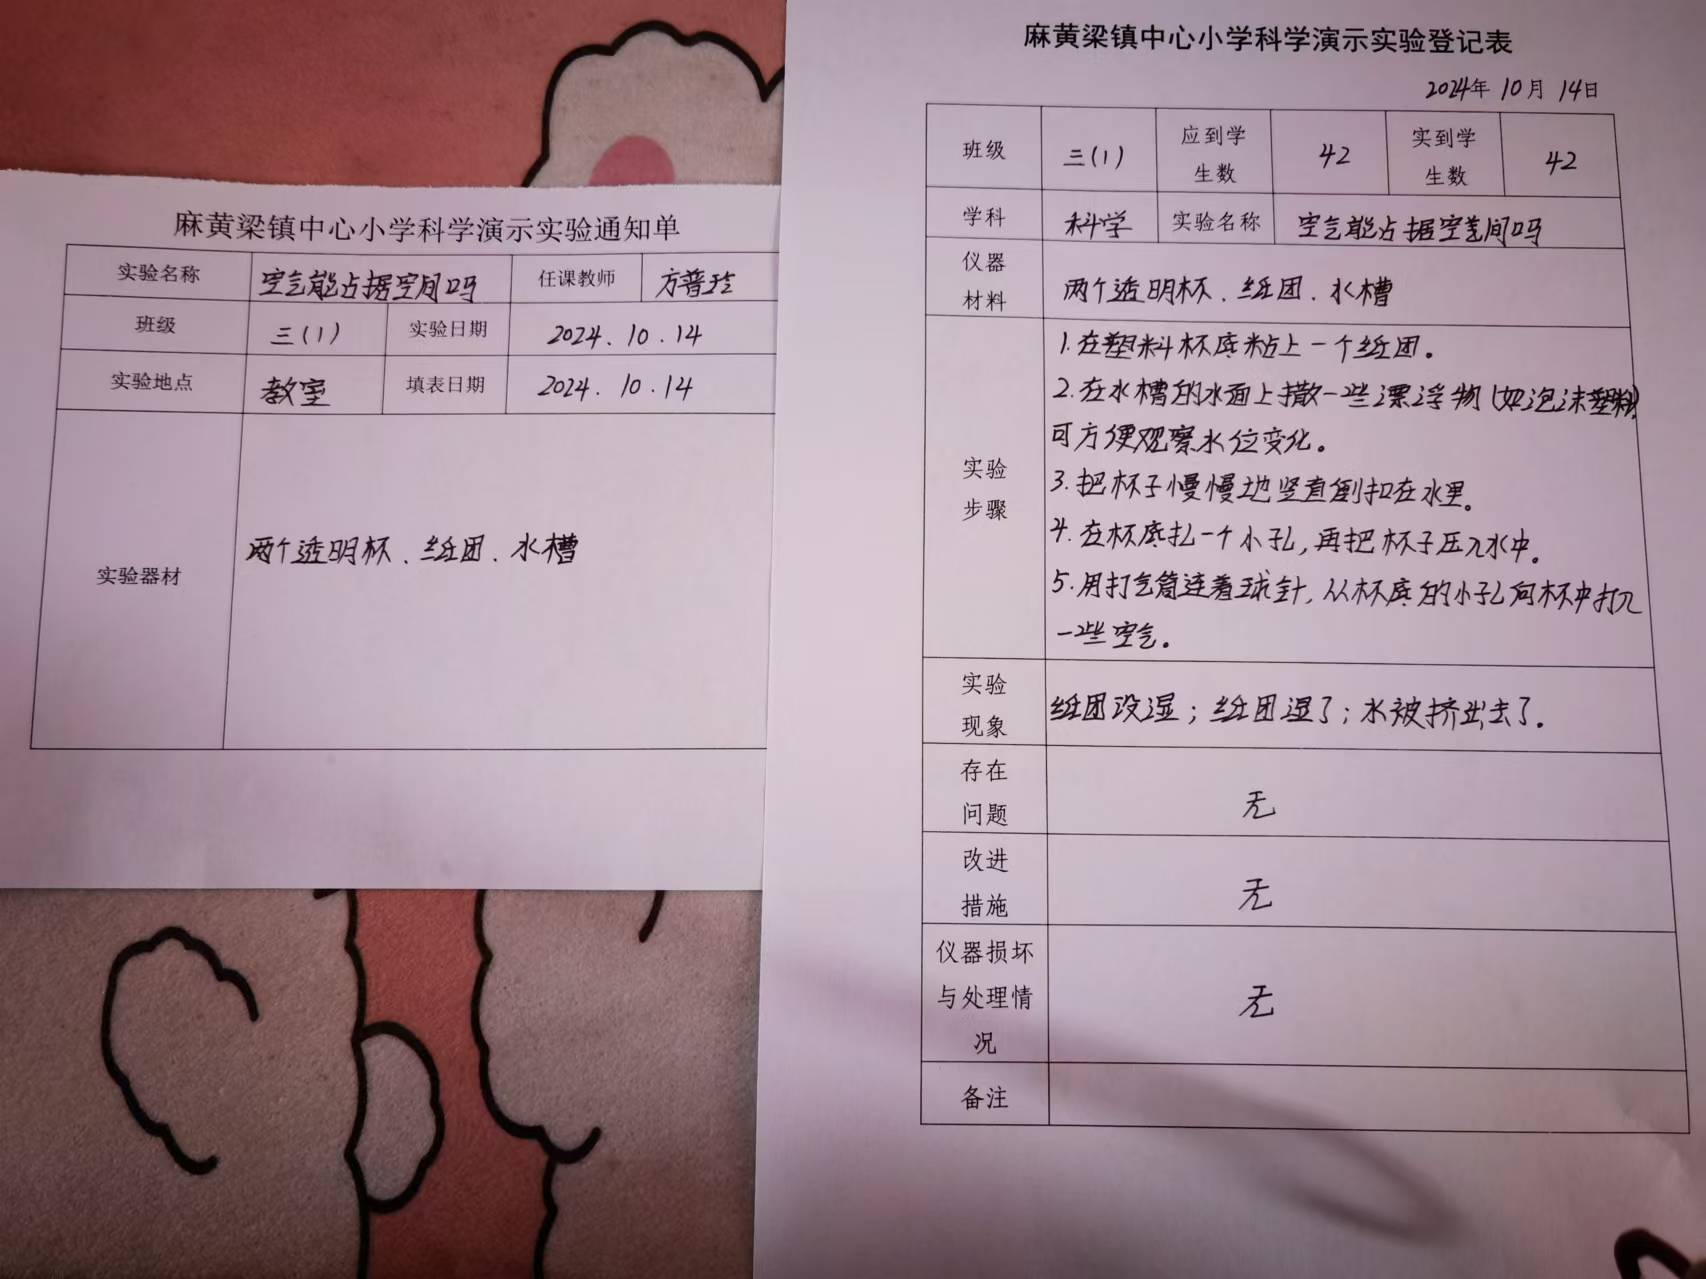 麻黄梁镇中心小学科学演示实验通知单
实验名称 空气能占据空间吗 任课教师 方普玲
班级 三(1) 实验日期 2024.10.14
实验地点 教室 填表日期 2024.10.14
实验器材 两个透明杯、纸团、水槽
麻黄梁镇中心小学科学演示实验登记表
2024年10月14日
班级 三(1) 应到学生数 42 实到学生数 42
学科 科学 实验名称 空气能占据空间吗
仪器材料 两个透明杯、纸团、水槽
实验步骤
1.在塑料杯底粘上一个纸团。
2.在水槽的水面上撒一些漂浮物(如泡沫塑料)
可方便观察水位变化。
3.把杯子慢慢地竖直倒扣在水里。
4.在杯底扎一个小孔,再把杯子压入水中。
5.用打气筒连着球针,从杯底的小孔向杯中打入
一些空气。
实验现象 纸团没湿;纸团湿了;水被挤出去了.
存在问题 无
改进措施 无
仪器损坏与处理情况 无
备注